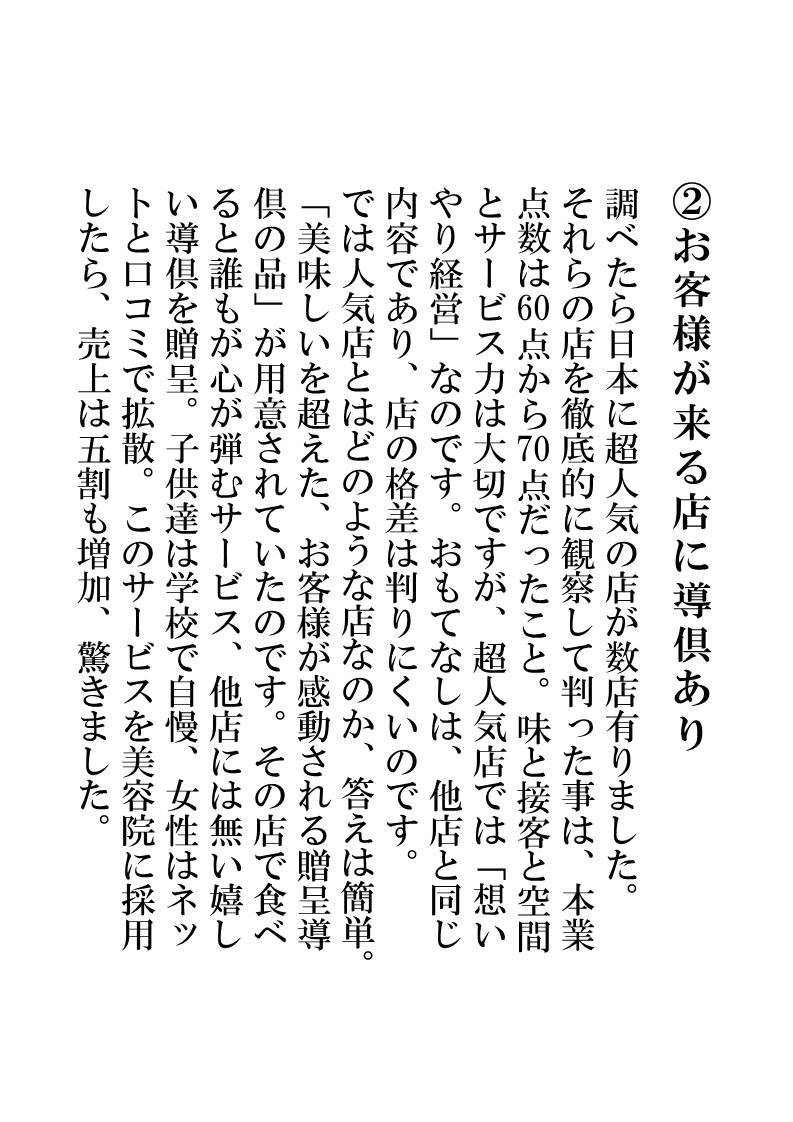 ②お客様が来る店に導倶あり
調べたら日本に超人気の店が数店有りました。
それらの店を徹底的に観察して判った事は、本業
点数は60点から70点だったこと。味と接客と空間
とサービス力は大切ですが、超人気店では「想い
やり経営」なのです。おもてなしは、他店と同じ
内容であり、店の格差は判りにくいのです。
では人気店とはどのような店なのか、答えは簡単。
「美味しいを超えた、お客様が感動される贈呈導
倶の品」が用意されていたのです。その店で食べ
ると誰もが心が弾むサービス、他店には無い嬉し
い導倶を贈呈。子供達は学校で自慢、女性はネッ
トと口コミで拡散。このサービスを美容院に採用
したら、売上は五割も増加、驚きました。